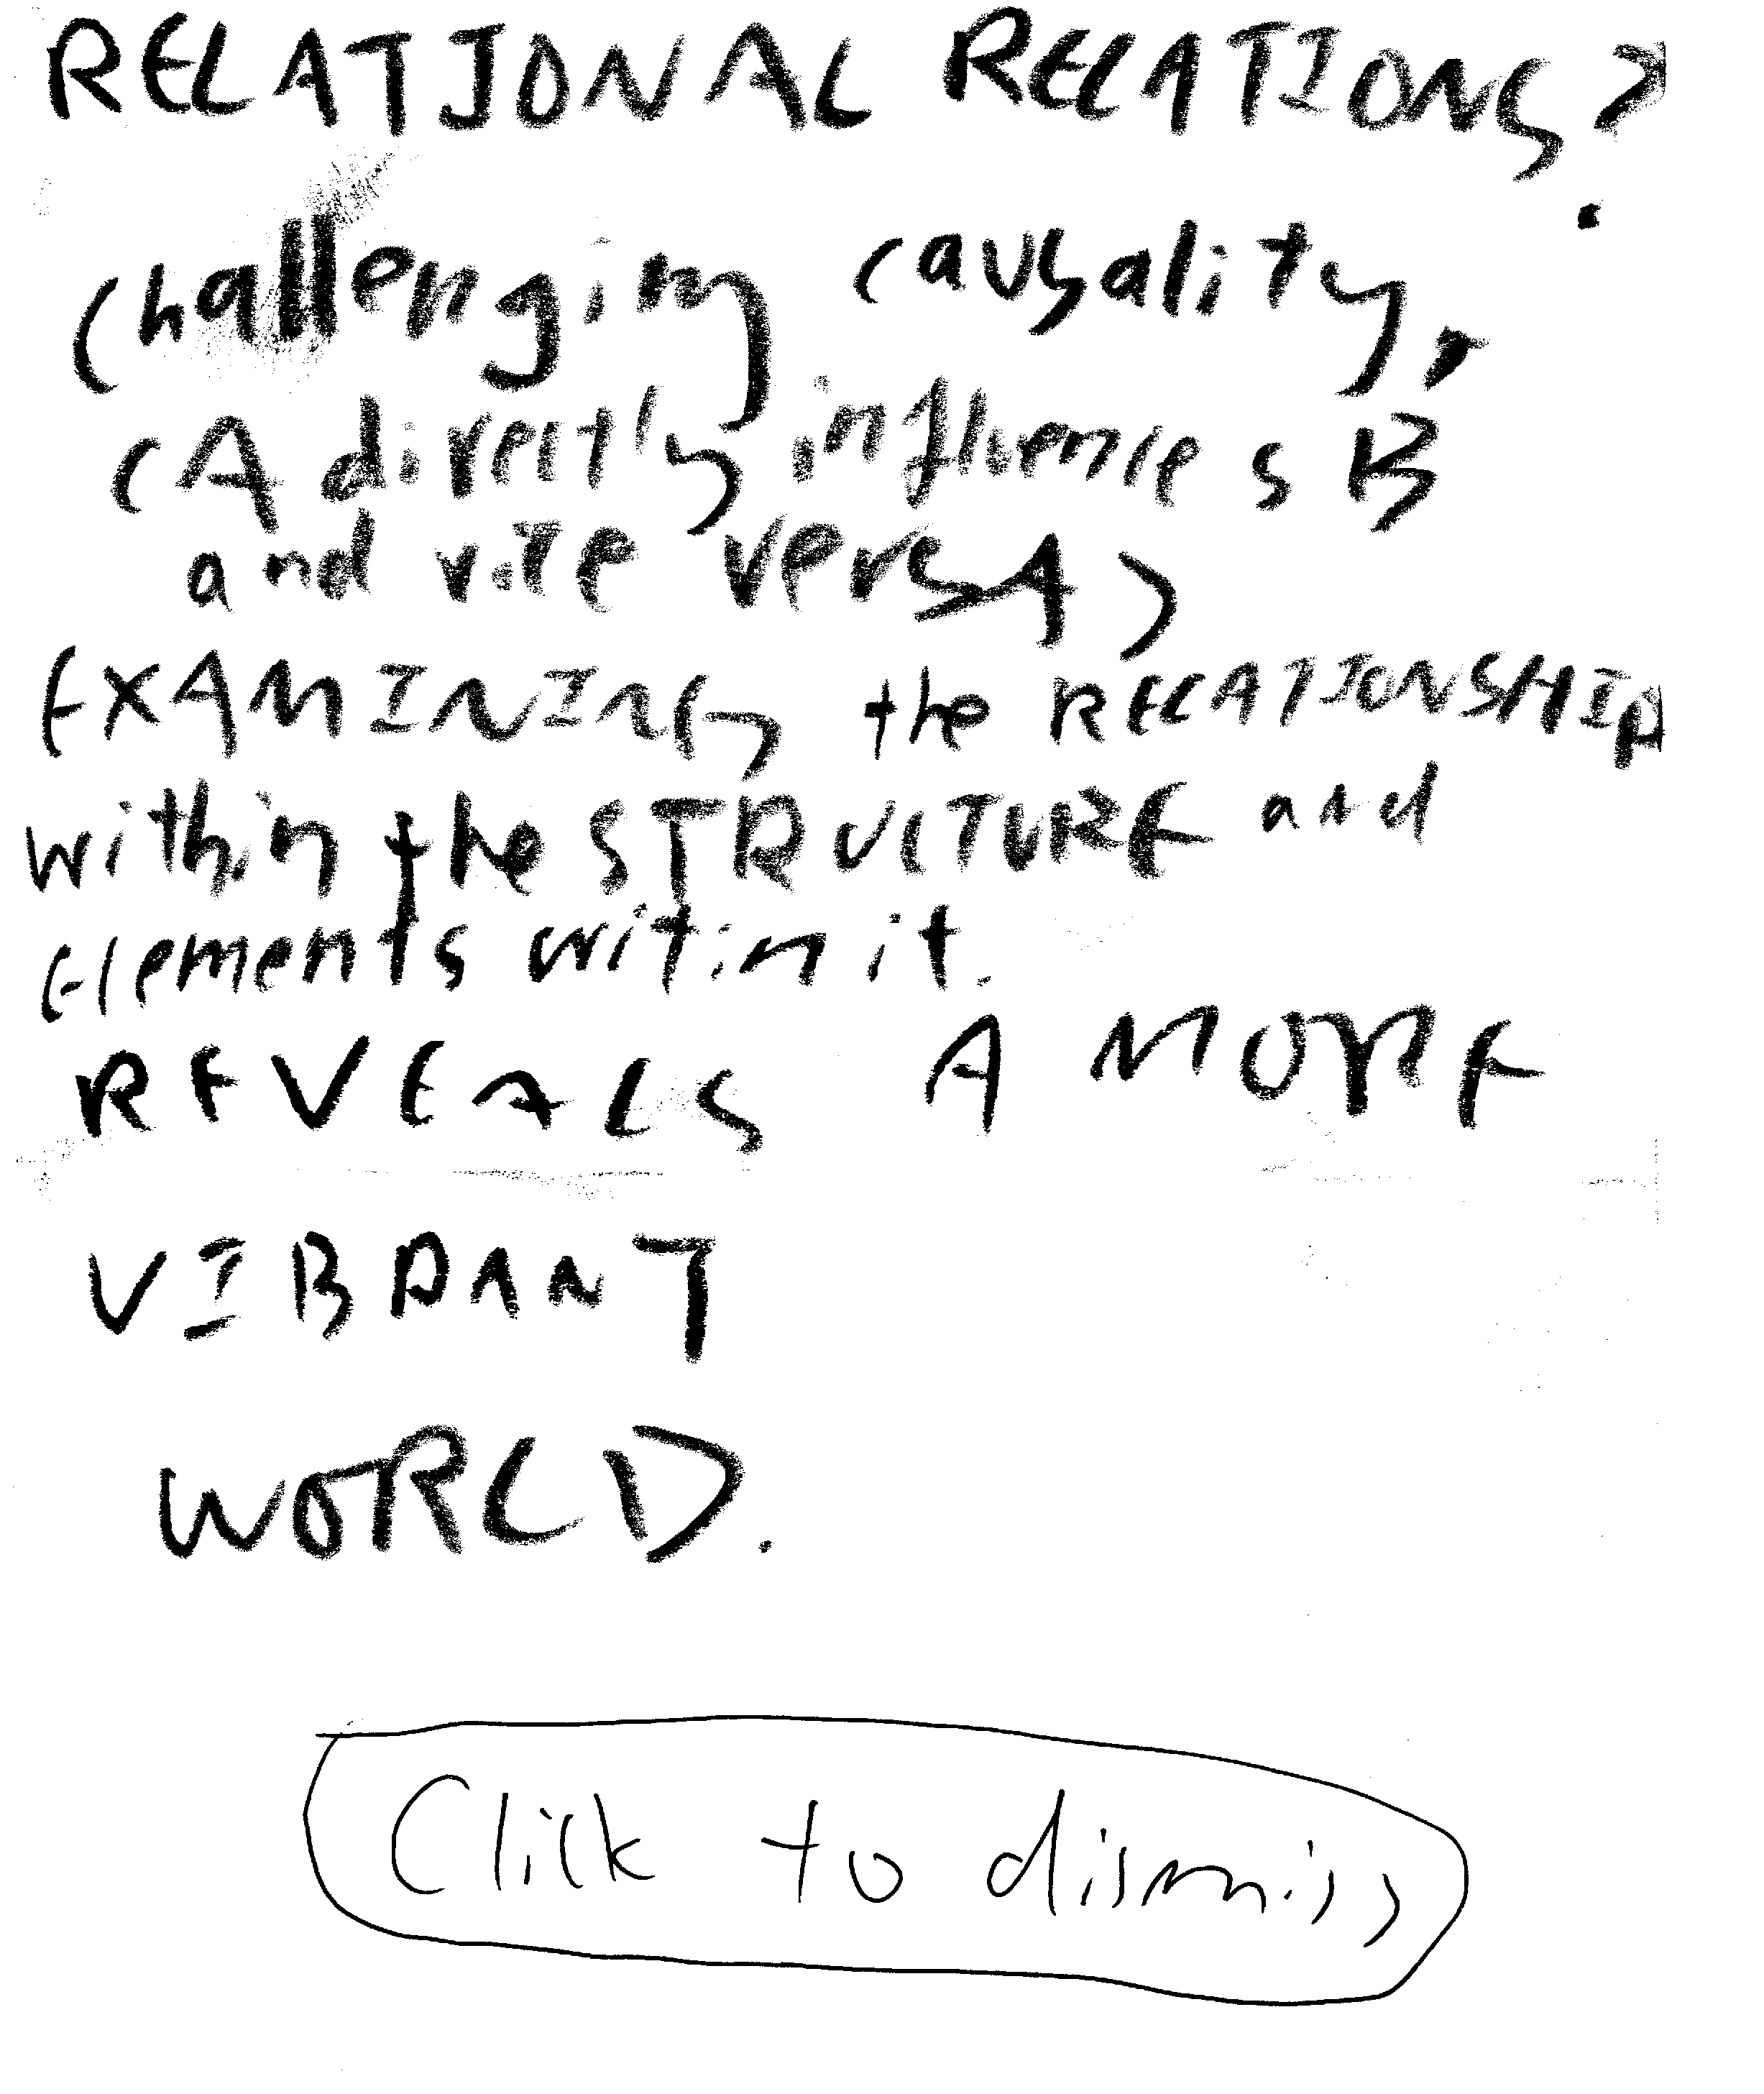 RELATIONAL RELATIONS?
Challenging causality,
(A directly influences B
and vice versA)
EXAMINING the RELATIONSHIP
within the STRUCTURE and
Elements witin it.
REVEALS A MORE
VIBRANT
WORLD.
Click to dismiss